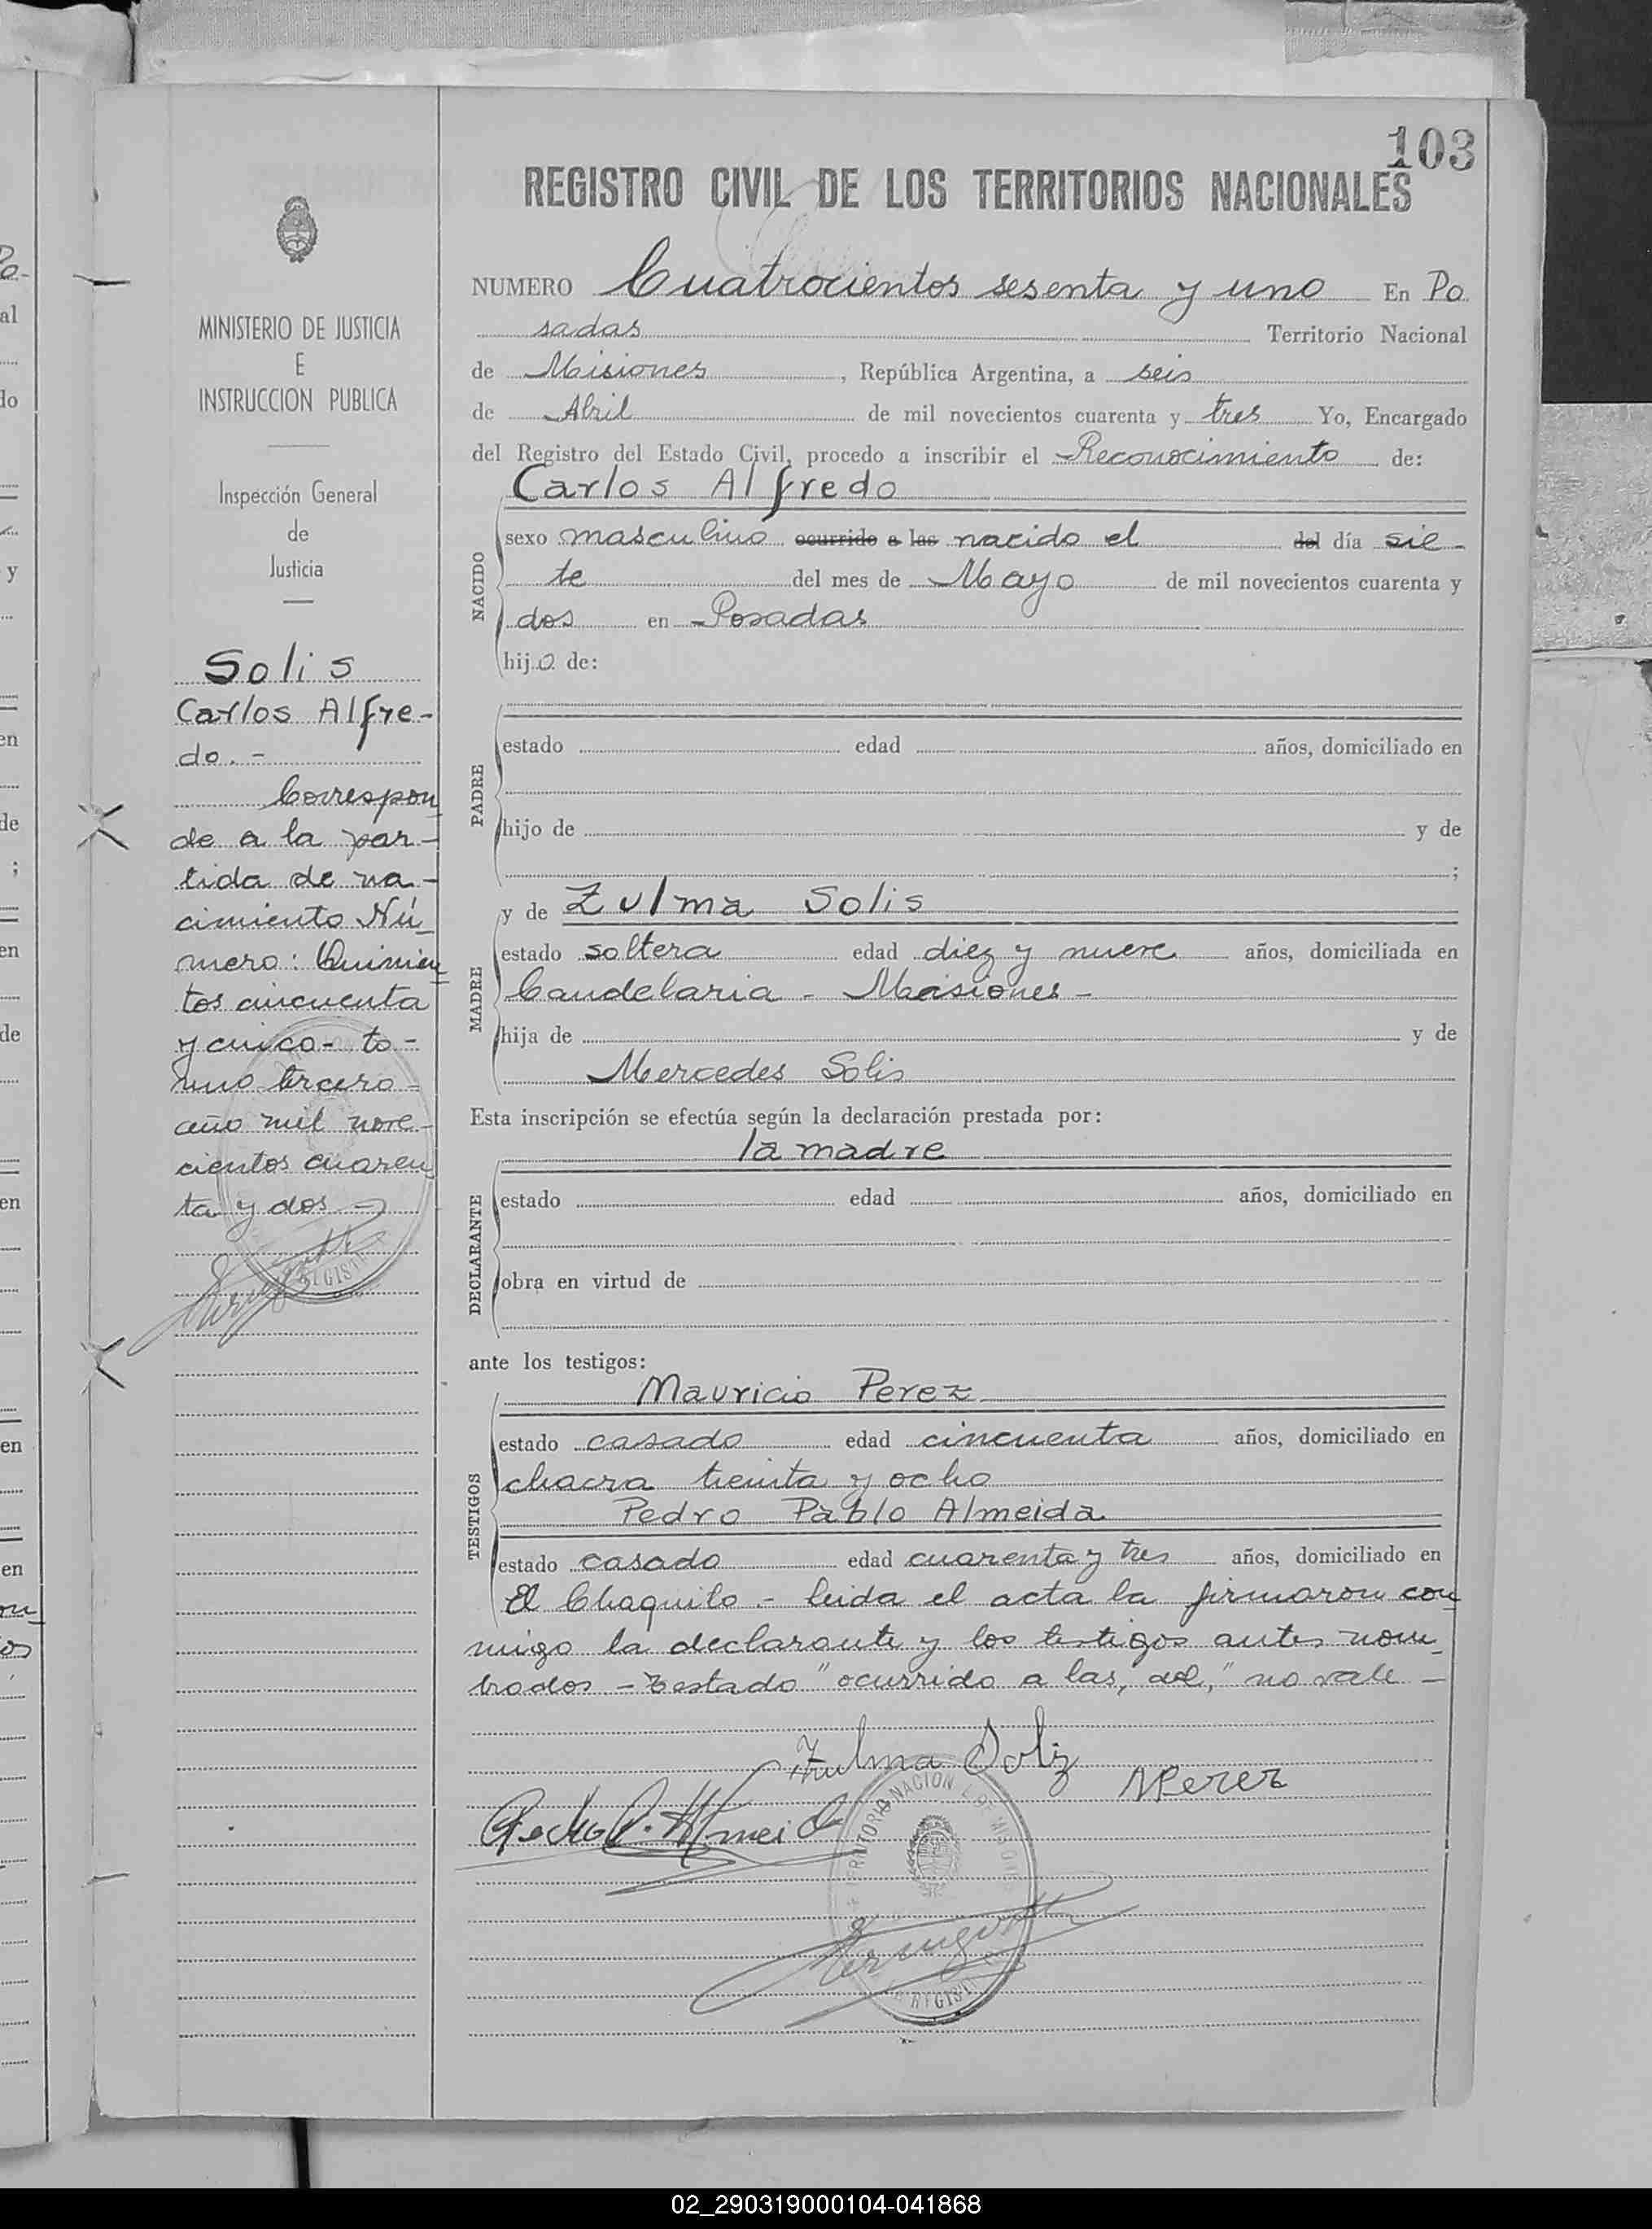 103
REGISTRO CIVIL DE LOS TERRITORIOS NACIONALES
MINISTERIO DE JUSTICIA
E
INSTRUCCION PUBLICA
Inspección General
de
Justicia
Solis
Carlos Alfre-
do. -
Correspon
de a la par-
tida de na-
cimiento Nú
mero: Quinien
tos cincuenta
y cinco - to-
mo tercero -
año mil nove-
cientos cuaren
ta y dos -
NUMERO Cuatrocientos sesenta y uno En Po
sadas Territorio Nacional
de Misiones, República Argentina, a seis
de Abril de mil novecientos cuarenta y tres Yo, Encargado
del Registro del Estado Civil, procedo a inscribir el Reconocimiento de:
Carlos Alfredo
NACIDO
sexo masculino ocurrido a las nacido el del día sie-
te del mes de Mayo de mil novecientos cuarenta y
dos en Posadas
hijo de:
PADRE
estado edad años, domiciliado en
hijo de y de
;
y de Zulma Solis
MADRE
estado soltera edad diez y nueve años, domiciliada en
Candelaria - Misiones -
hija de y de
Mercedes Solis
Esta inscripción se efectúa según la declaración prestada por:
la madre
DECLARANTE
estado edad años, domiciliado en
obra en virtud de
ante los testigos:
Mauricio Perez
TESTIGOS
estado casado edad cincuenta años, domiciliado en
chacra treinta y ocho
Pedro Pablo Almeida
estado casado edad cuarenta y tres años, domiciliado en
El Chaquito - leida el acta la firmaron con
migo la declarante y los testigos antes nom
brados - Testado "ocurrido a las, del," no vale -
Zulma Soliz
MPerez
Pedro P. Almeida
TERRITORIO NACIONAL DE MISIONES
REGIST
02_290319000104-041868